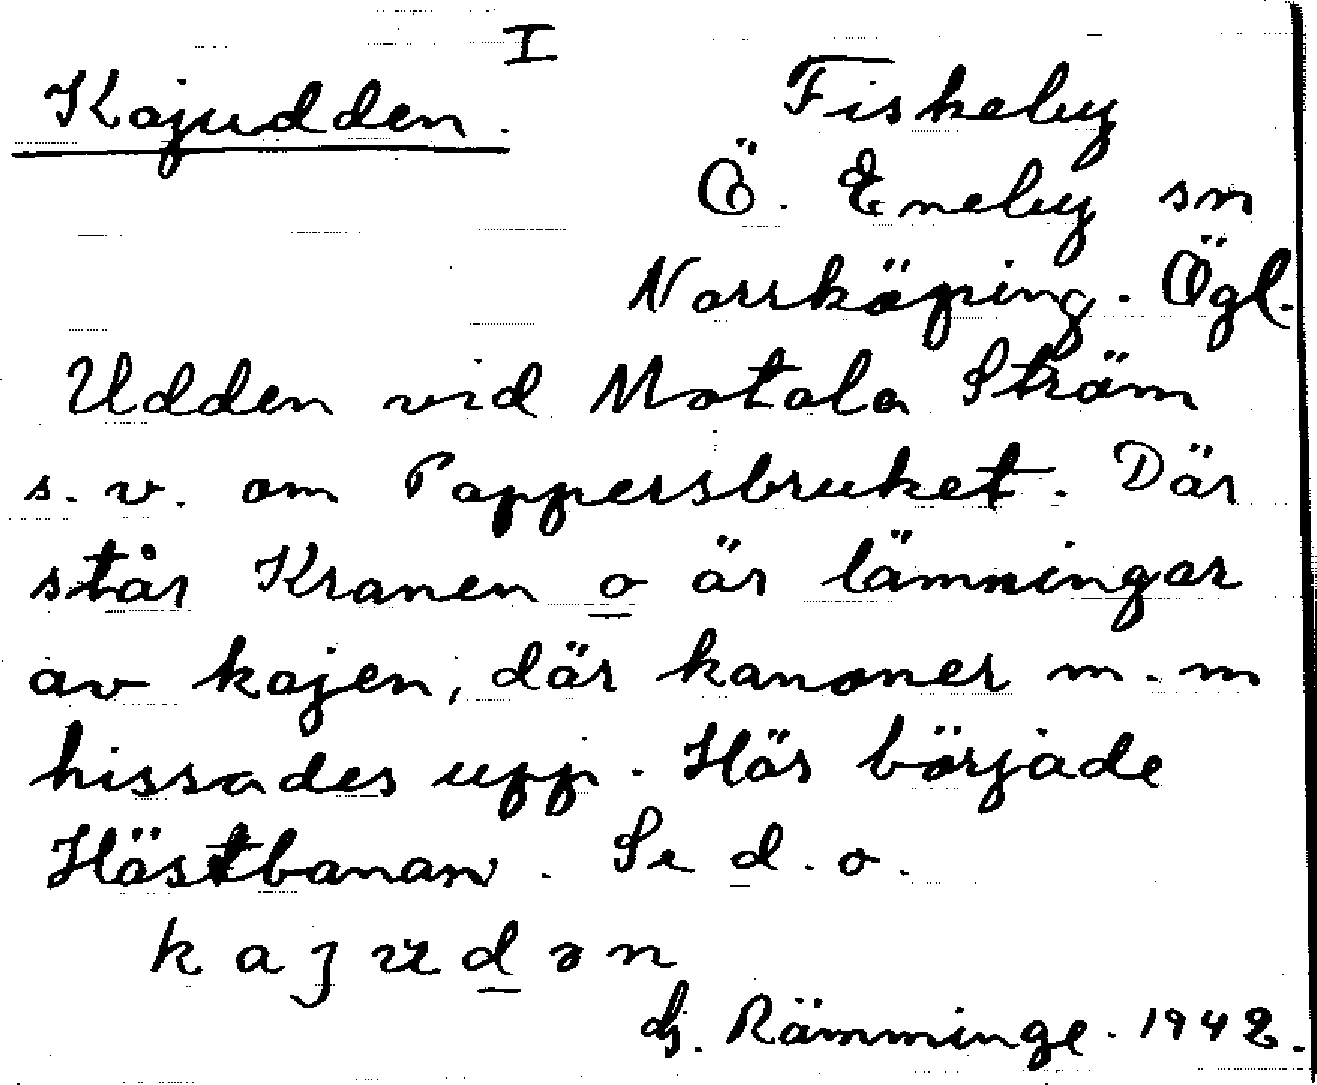 I
Kajudden. Fiskeby
Ö. Eneby sn
Norrköping. Ögl.
Udden vid Motala Ström
s.v. om Pappersbruket. Där
står Kranen o är lämningar
av kajen, där kanoner m.m
hissades upp. Här började
Hästbanan. Se d.o.
kajudən
G. Rämminge. 1942.